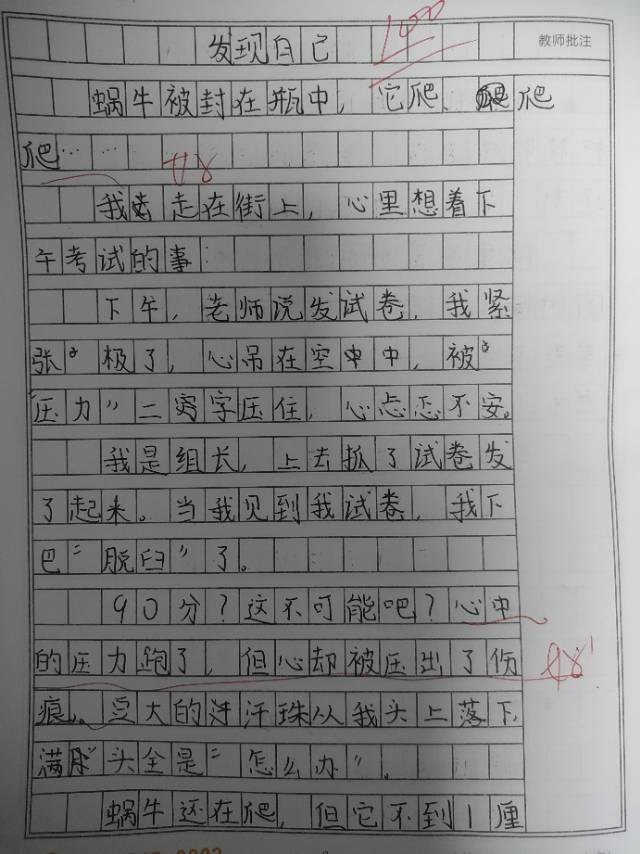 发现自己 100
教师批注
蜗牛被封在瓶中，它爬、爬
爬……
好
我走在街上，心里想着下
午考试的事：
下午，老师说发试卷，我紧
张极了，心吊在空中，被
“压力”二字压住，心忐忑不安。
我是组长，上去抓了试卷发
了起来。当我见到我试卷，我下
巴“脱臼”了。
90分？这不可能吧？心中
的压力跑了，但心却被压出了伤
好
痕。豆大的汗珠从我头上落下，
满头全是“怎么办”。
蜗牛还在爬，但它不到1厘